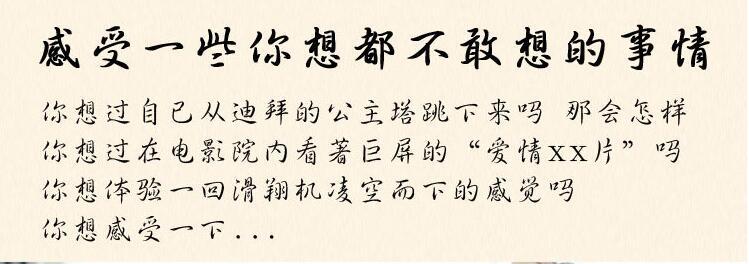 感受一些你想都不敢想的事情
你想过自己从迪拜的公主塔跳下来吗 那会怎样
你想过在电影院内看著巨屏的“爱情xx片”吗
你想体验一回滑翔机凌空而下的感觉吗
你想感受一下...